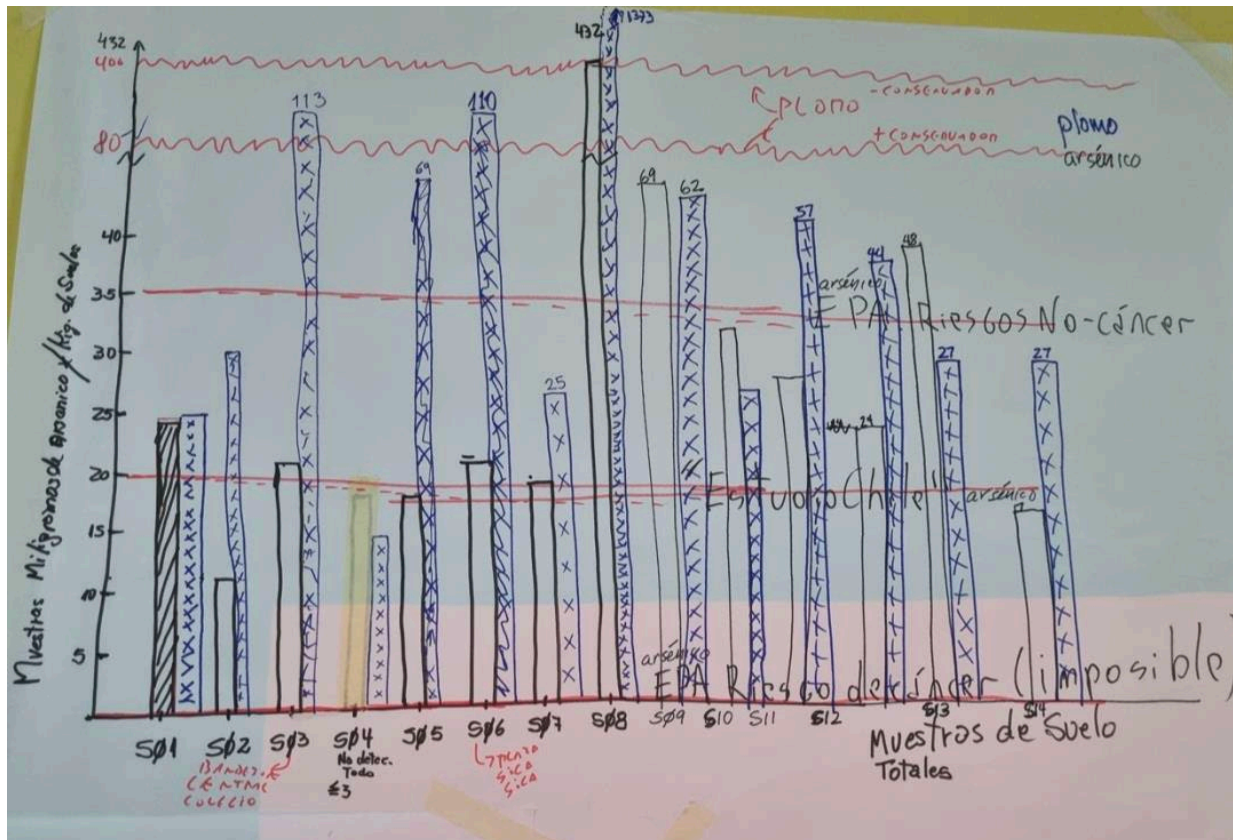 432
400
80
40
35
30
25
20
15
10
5
Muestras Miligramos de Arsenico / Kg. de Suelos
113
69
110
25
432
1373
69
62
57
44
29
48
27
27
PLOMO
- CONSERVADOR
+ CONSERVADOR
plomo
arsénico
arsénico
EPA Riesgos No-cáncer
Estudio Chile
arsénico
arsénico
EPA Riesgo de cáncer (imposible)
SØ1
SØ2
SØ3
SØ4
No detec.
Todo
≤3
SØ5
SØ6
SØ7
SØ8
SØ9
S10
S11
S12
S13
S14
CENTRAL
Muestros de Suelo
Totales